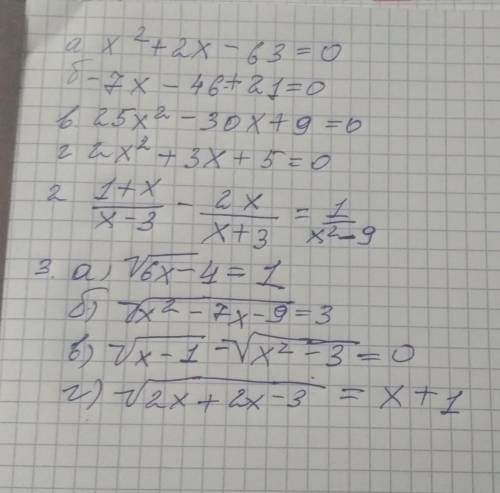 а x² + 2x - 63 = 0
б - 7x - 46 + 21 = 0
в. 25x² - 30x + 9 = 0
г 2x² + 3x + 5 = 0
2 (1+x)/(x-3) - 2x/(x+3) = 1/(x²-9)
3. а) √(6x-4) = 1
б) √(x² - 7x - 9) = 3
в) √(x-1) - √(x² - 3) = 0
г) √(2x + 2x - 3) = x + 1